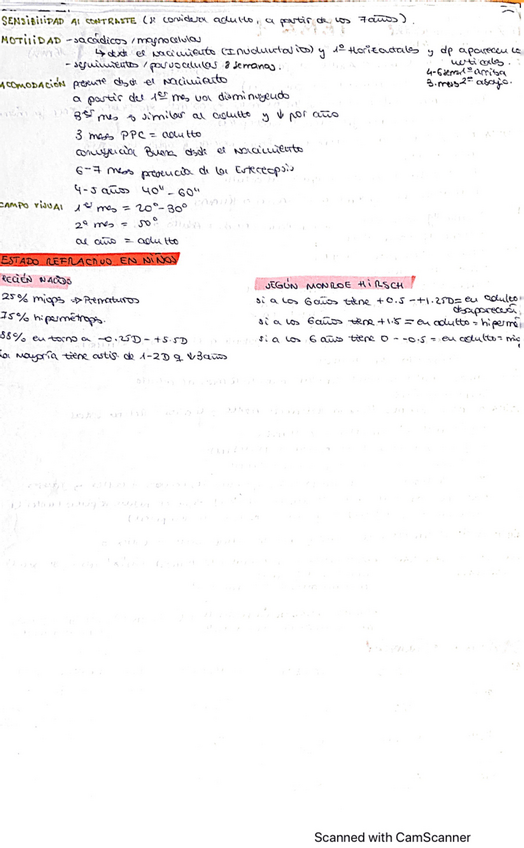 SENSIBILIDAD AL CONTRASTE (se considera adulto, a partir de los 7 años).
MOTILIDAD - sacádicos / magnocelular
↳ desde el nacimiento (Involuntarios) y 1º Horizontales y dp aparecen los verticales.
4-6 sem 1º arriba
3 mes 2º abajo.
- seguimientos / parvocelular 8 semanas.
ACOMODACIÓN presente desde el nacimiento
a partir del 1er mes va disminuyendo
3er mes es similar al adulto y ↓ por año
3 meses PPC = adulto
convergencia Buena desde el Nacimiento
6-7 meses presencia de la Estereopsis
4-5 años 40" - 60"
CAMPO VISUAL 1er mes = 20º-30º
2º mes = 50º
al año = adulto
ESTADO REFRACTIVO EN NIÑOS
RECIÉN NACIDOS
25% miops → Prematuros
75% hipermétrops.
88% en torno a -0.25D - +5.5D
La Mayoría tiene astig. de 1-2D q ↓ 3 años
SEGÚN MONROE HIRSCH
si a los 6 años tiene +0.5 - +1.25D = en adulto desaparecerá.
si a los 6 años tiene +1.5 = en adulto = hiperme
si a los 6 años tiene 0 - -0.5 = en adulto = mio
Scanned with CamScanner